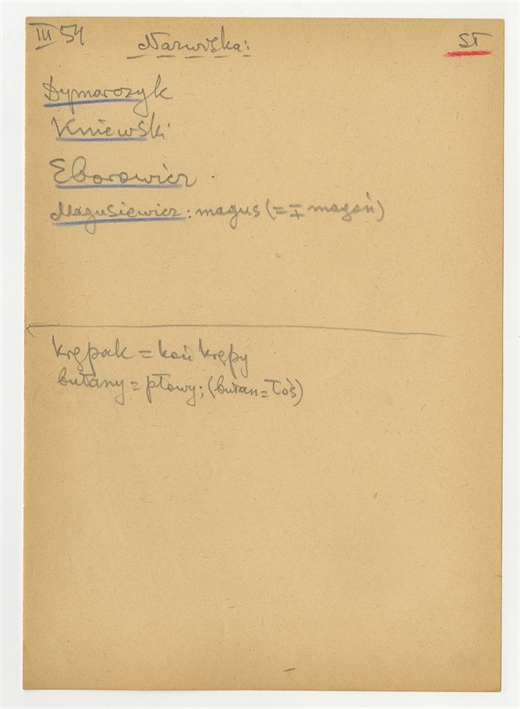 III 54
Nazwiska:
ST
Dymarczyk
Kniewski
Eborowicz.
Magusiewicz: magus (= ∓ magoń)
krępak = koń krępy
bułany = płowy; (bułan = łoś)